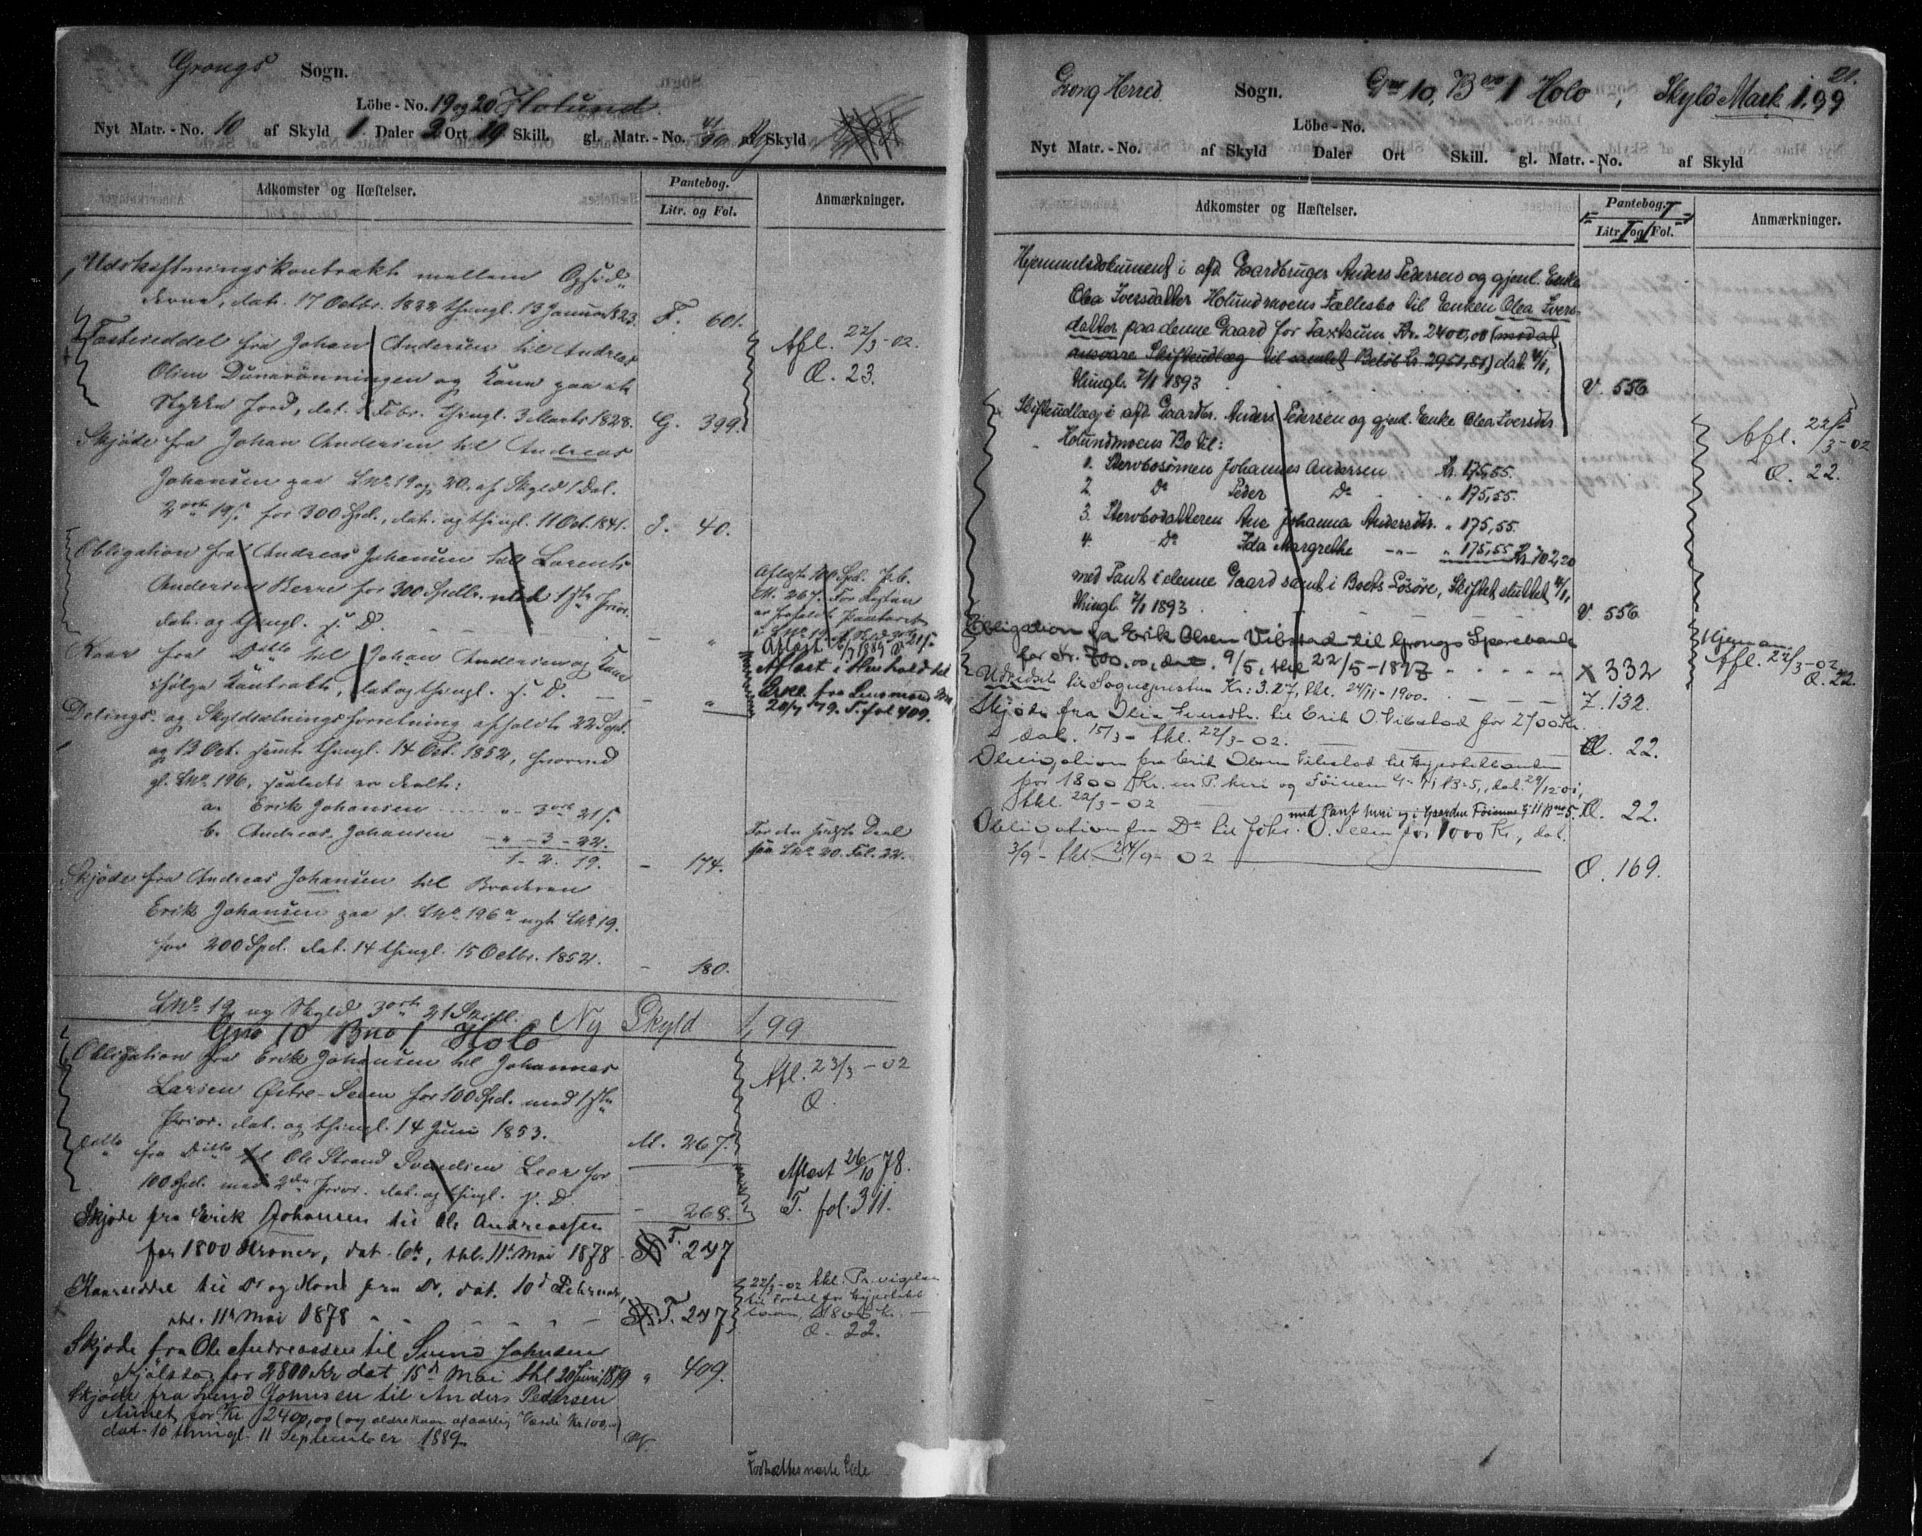 Grongs Sogn.
Löbe-No. 19 og 20 Holund.
Nyt Matr.-No. 10 af Skyld 1 Daler 2 Ort 19 Skill. gl. Matr.-No. af Skyld
Adkomster og Hæftelser.
Pantebog.
Litr. og Fol.
Anmærkninger.
Udskiftningskontrakt mellem Opsid-
derne, dat. 17 Octbr. 1822 thingl. 13 Januar 1823. F. 601.
Fæsteseddel fra Johan Andersen til Andreas
Olsen Dunrönningen og Kone paa et
Stykke Jord, dat. Febr. thingl. 3 Marts 1828. G. 399.
Afl. 22/3-02.
Q. 23.
Skjöde fra Johan Andersen til Andreas
Johansen paa LNo. 19 og 20 af Skyld 1 Dal.
2 ort 19 s. for 300 Spd., dat. og thingl. 11 Oct. 1841. J. 40.
Obligation fra Andreas Johansen til Lorents
Andersen Berre for 300 Spdlr. med 1ste Prior.
dat. og thingl. s. D. - "
Aflæst 100 Spd. J.b.
M. 267. For Resten
er frafaldt Panteret
i LNo. 19.
Kaar fra Ditto til Johan Andersen og Kone
ifølge Kontrakt, dat. og thingl. s. D. - "
Aflæst i Henhold til
Erkl. fra Lensmand
20/6 79. T. fol 409.
Delings- og Skyldsætningsforretning afholdt 22 Sept.
og 13 Oct. samt thingl. 14 Oct. 1852, hvorved
gl. LNo. 196, saaledes er deelt:
a. Erik Johansen " - 3 ort 21 s.
b. Andreas Johansen " - 3 - 22.
1 - 2. 19. - 174.
For den sidste Deel
see LNo. 20. Fol. 22.
Skjöde fra Andreas Johansen til Broderen
Erik Johansen paa gl. LNo. 196 a nyt LNo. 19.
for 200 Spd. dat. 14 thingl. 15 Octbr. 1852. - 180.
LNo. 19 ny Skyld 3 ort 21 Skill. Ny Skyld 1,99
Gno 10 Bno 1 Holo
Obligation fra Erik Johansen til Johannes
Larsen Østre-Seem for 100 Spd. med 1ste
Prior. dat. og thingl. 14 Juni 1853. M. 267.
Afl. 23/3-02
Q.
Ditto fra Ditto til Ole Strand Svendsen Leer for
100 Spd. med 2den Prior. dat. og thingl. s. D. - 268.
Aflæst 26/10 78.
T. fol. 311.
Skjöde fra Erik Johansen til Ole Andreassen
for 1800 Kroner, dat. 6te, thl. 11te Mai 1878 T. 247
Kaarseddel til Do og Kone fra Do, dat. 10de Februar,
thl. 11te Mai 1878 T. 247
22/3-02 thl. Pr. vigelse
til Fordel for Hypothek
laan, 1800 Kr.
Q. 22.
Skjöde fra Ole Andreassen til Svend Johnsen
Kjölstad for 2800 Kr dat 15de Mai thl 20 Juni 1879 " 409.
Skjöde fra Svend Johnsen til Anders Pedersen
Aunet for Kr 2400,00 (og aldrekaar af aarlig Værdi Kr 100,00)
dat 10 thingl. 11 September 1889
Fortsættes næste Side
21.
Grong Herred Sogn. Gno 10, Bno 1 Holo, Skyld Mark 1,99
Löbe-No.
Nyt Matr.-No. af Skyld Daler Ort Skill. gl. Matr.-No. af Skyld
Adkomster og Hæftelser.
Pantebog.
Litr. og Fol.
Anmærkninger.
Hjemmelsdokument i afd. Gaardbruger Anders Pedersens og gjenl. Enke
Olea Iversdatter Holundmoens Fællesbo til Enken Olea Ivers-
datter paa denne Gaard for Taxtsum Kr. 2400,00 (mod at
ansvare Skifteudlæg til samlet Beløb Kr. 2951,51) dat. 4/1,
thingl. 7/1 1893 V. 556
Skifteudlæg i afd. Gaardbr. Anders Pedersen og gjenl. Enke Olea Iversdtr.
Holundmoens Bo til:
1. Stervbosønnen Johannes Andersen Kr. 175,55.
2. Do Peder Do " 175,55.
3. Stervbodatteren Ane Johanna Andersdtr. " 175,55
4. Do Ida Margrethe -"- " 175,55 Kr. 702,20
med Pant i denne Gaard samt i Boets Løsøre, Skiftet sluttet 4/1,
thingl. 7/1 1893 V. 556
Afl. 22/3-02
Q. 22.
Obligation fra Erik Olsen Vibstad til Grongs Sparebank
for Kr. 700,00, dat. 9/5, thl 22/5-1897 X 332
Hjemm.
Afl. 22/3-02
Q. 22.
Udskidet til Sognepresten Kr: 3.27, thl. 24/11-1900. Z. 132.
Skjöde fra Olea Iversdtr. til Erik O. Vibstad for 2700 Kr.
dat. 15/3 - thl. 22/3-02. Q. 22.
Obligation fra Erik Olsen Vibstad til Hypothekbanken
for 1800 Kr. m. P. heri og Föinem G-11, B-5, dat. 29/12-01,
thl. 22/3-02 Q. 22.
med Pant heri og i Gaarden Föinem G 11 Bno 5.
Obligation fra Do til Johs. O. Seem for 1000 Kr, dat.
3/9 - thl. 24/9-02 Q. 169.